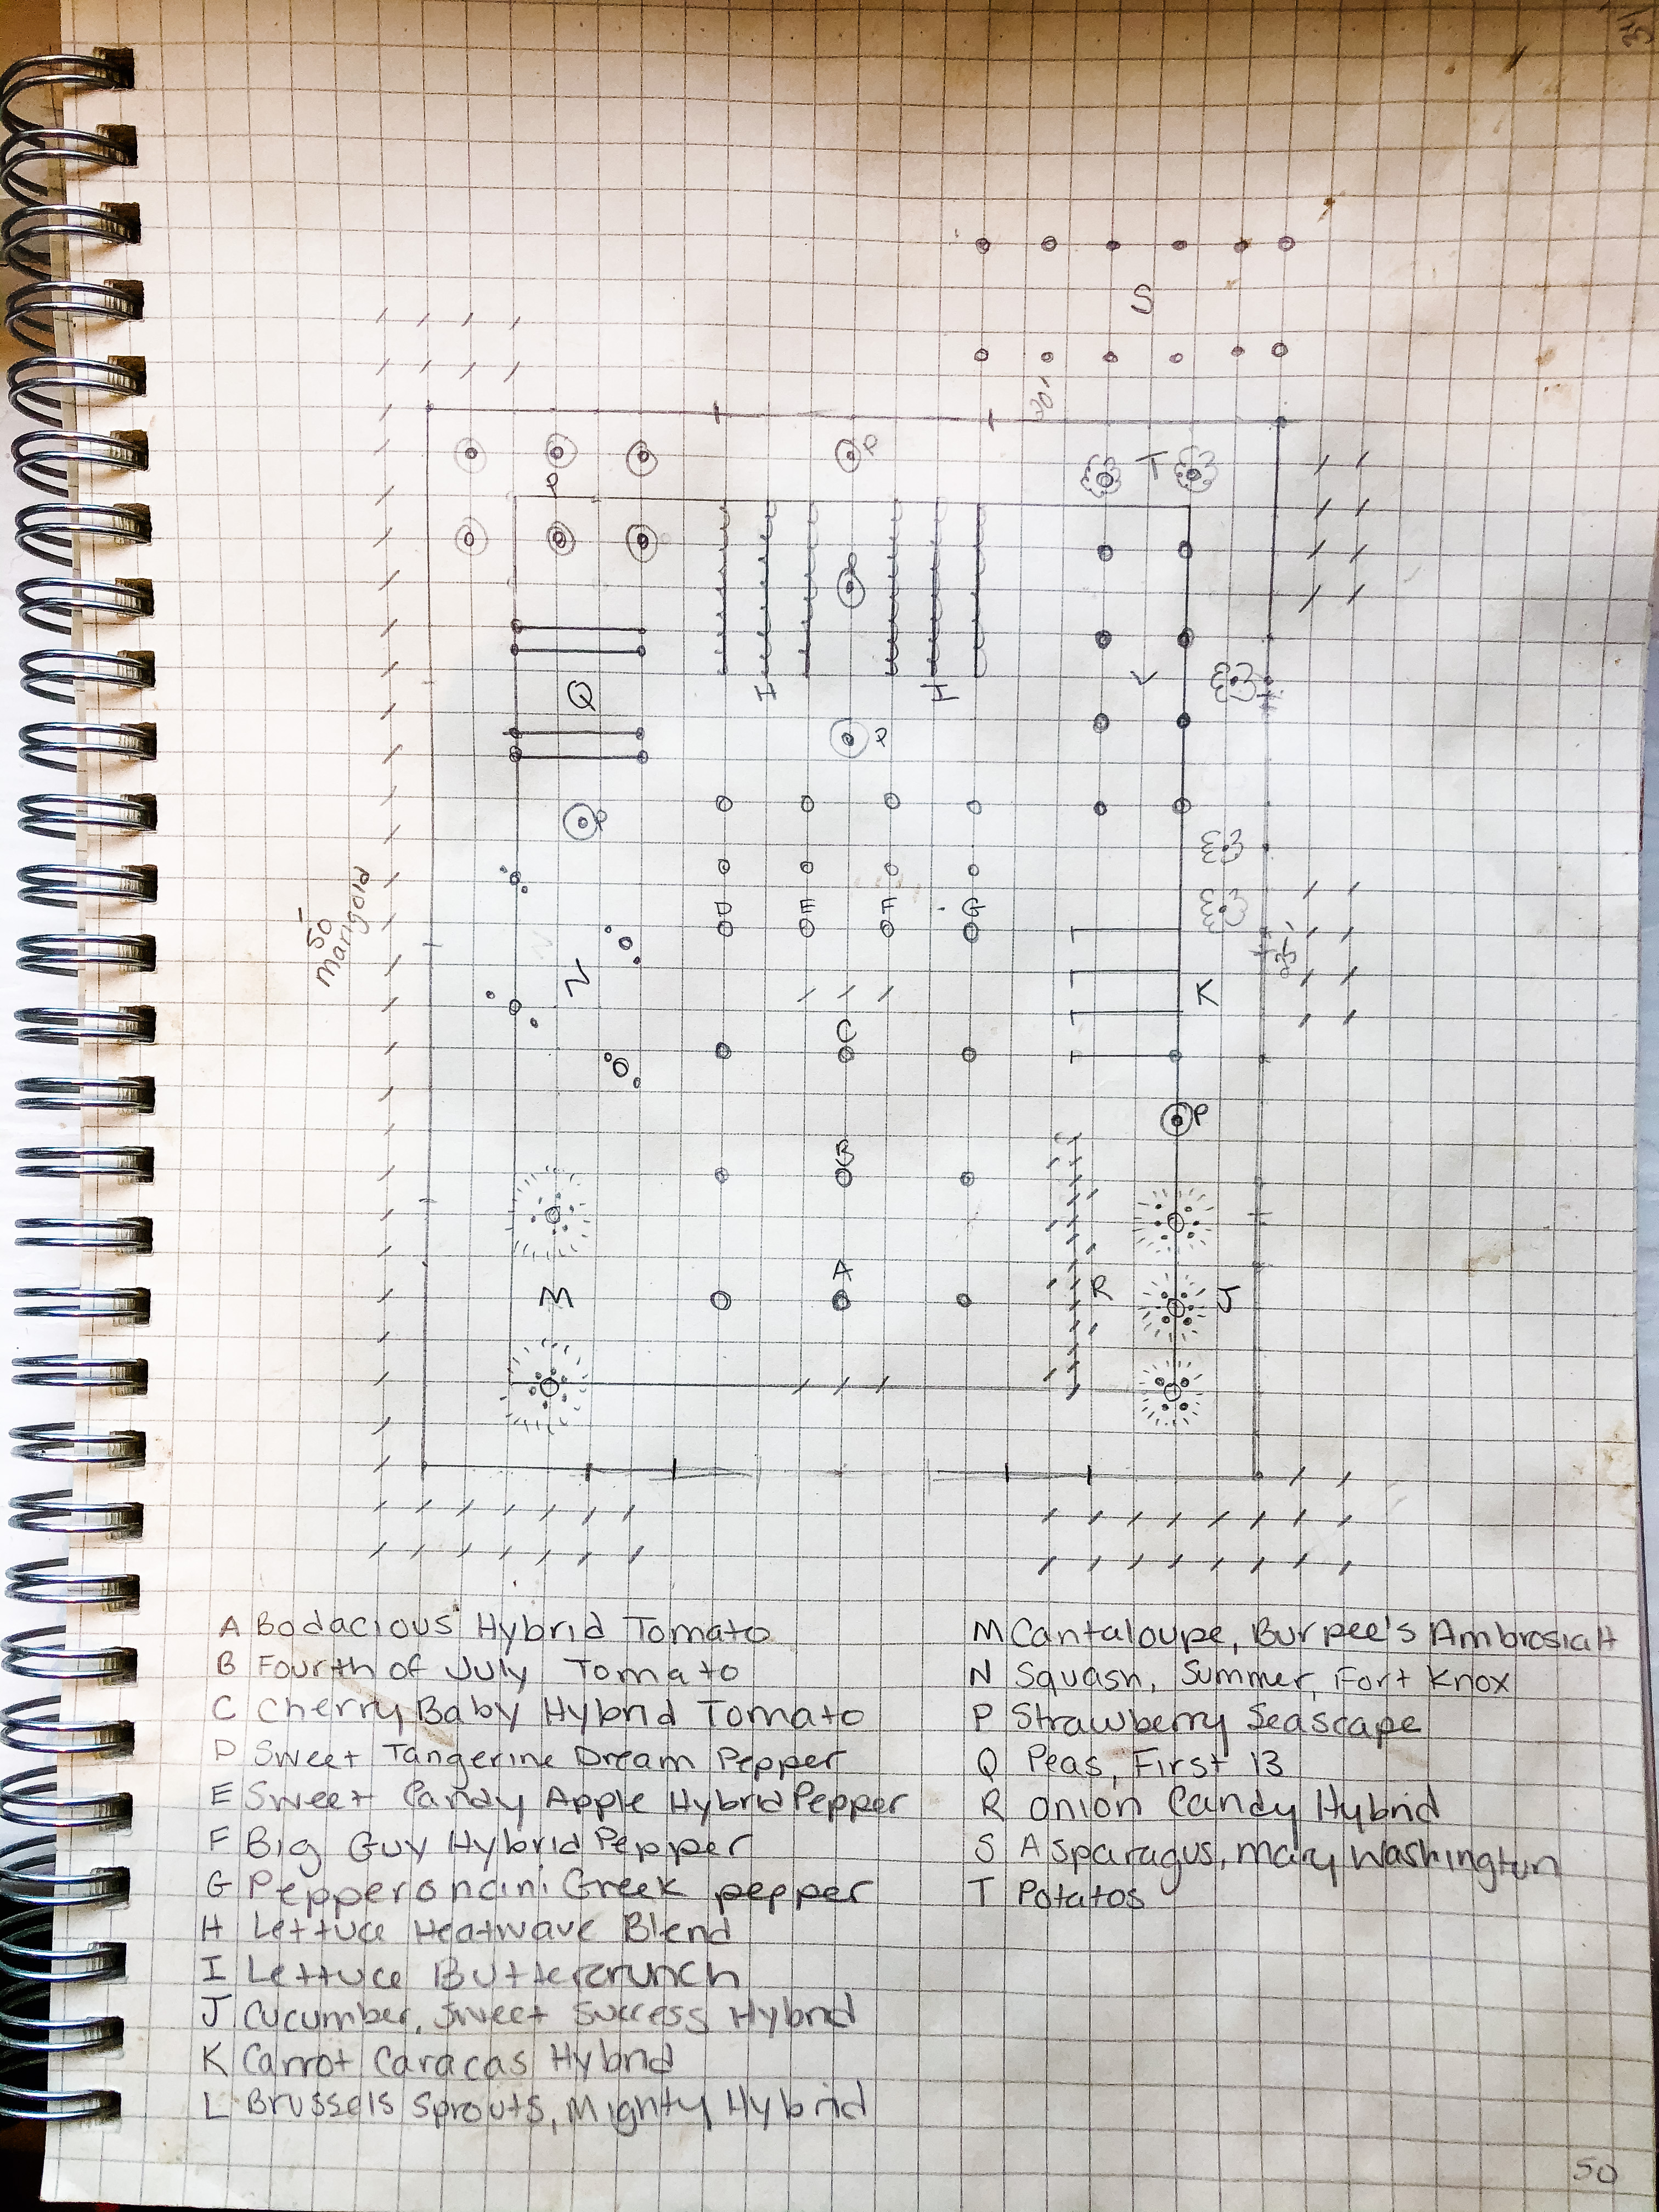 S
20'
P
T
P
P
I
H
L
Q
P
P
50'
Marigold
D E F G
N
K
25'
C
P
B
A
M
R
J
A Bodacious Hybrid Tomato
B Fourth of July Tomato
C Cherry Baby Hybrid Tomato
D Sweet Tangerine Dream Pepper
E Sweet Candy Apple Hybrid Pepper
F Big Guy Hybrid Pepper
G Pepperoncini Greek pepper
H Lettuce Heatwave Blend
I Lettuce Buttercrunch
J Cucumber, Sweet Success Hybrid
K Carrot Caracas Hybrid
L Brussels Sprouts, Mighty Hybrid
M Cantaloupe, Burpee's Ambrosia H
N Squash, Summer, Fort Knox
P Strawberry Seascape
Q Peas, First 13
R Onion Candy Hybrid
S Asparagus, Mary Washington
T Potatos
50